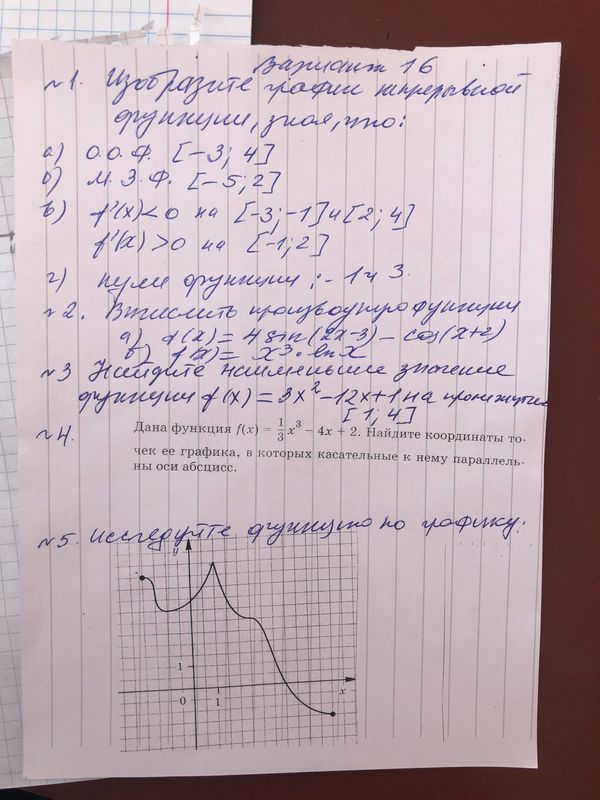 Вариант 16
№1. Изобразите график непрерывной
функции, зная, что:
а) О.О.Ф. [-3; 4]
б) М.З.Ф. [-5; 2]
в) f'(x)<0 на [-3;-1] и [2; 4]
f'(x)>0 на [-1; 2]
г) нули функции: -1 и 3.
№2. Вычислить производную функции
а) f(x)= 4 sin(2x-3) - cos(x+2)
б) f(x)= x³·lnx
№3 Найдите наименьшее значение
функции f(x)=3x²-12x+1 на промежутке
[1; 4]
№4. Дана функция f(x) = 1/3 x³ – 4x + 2. Найдите координаты то-
чек ее графика, в которых касательные к нему параллель-
ны оси абсцисс.
№5. Исследуйте функцию по графику:
y
1
0 1 x